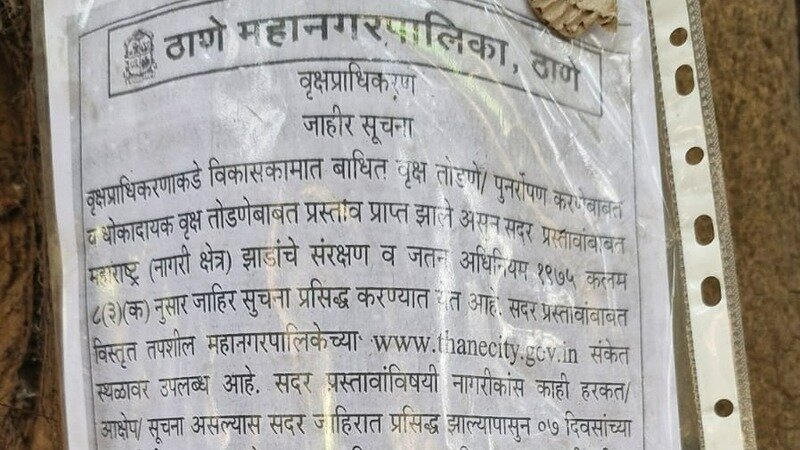 ठाणे महानगरपालिका, ठाणे
वृक्षप्राधिकरण
जाहीर सूचना
वृक्षप्राधिकरणाकडे विकासकामात बाधित वृक्ष तोडणे/ पुनर्रोपण करणेबाबत
व धोकादायक वृक्ष तोडणेबाबत प्रस्ताव प्राप्त झाले असुन सदर प्रस्तावांबाबत
महाराष्ट्र (नागरी क्षेत्र) झाडांचे संरक्षण व जतन अधिनियम १९७५ कलम
८(३)(क) नुसार जाहिर सुचना प्रसिद्ध करण्यात येत आहे. सदर प्रस्तावांबाबत
विस्तृत तपशील महानगरपालिकेच्या www.thanecity.gov.in संकेत
स्थळावर उपलब्ध आहे. सदर प्रस्तावांविषयी नागरीकांस काही हरकत/
आक्षेप/ सूचना असल्यास सदर जाहिरात प्रसिद्ध झाल्यापासुन ०७ दिवसांच्या